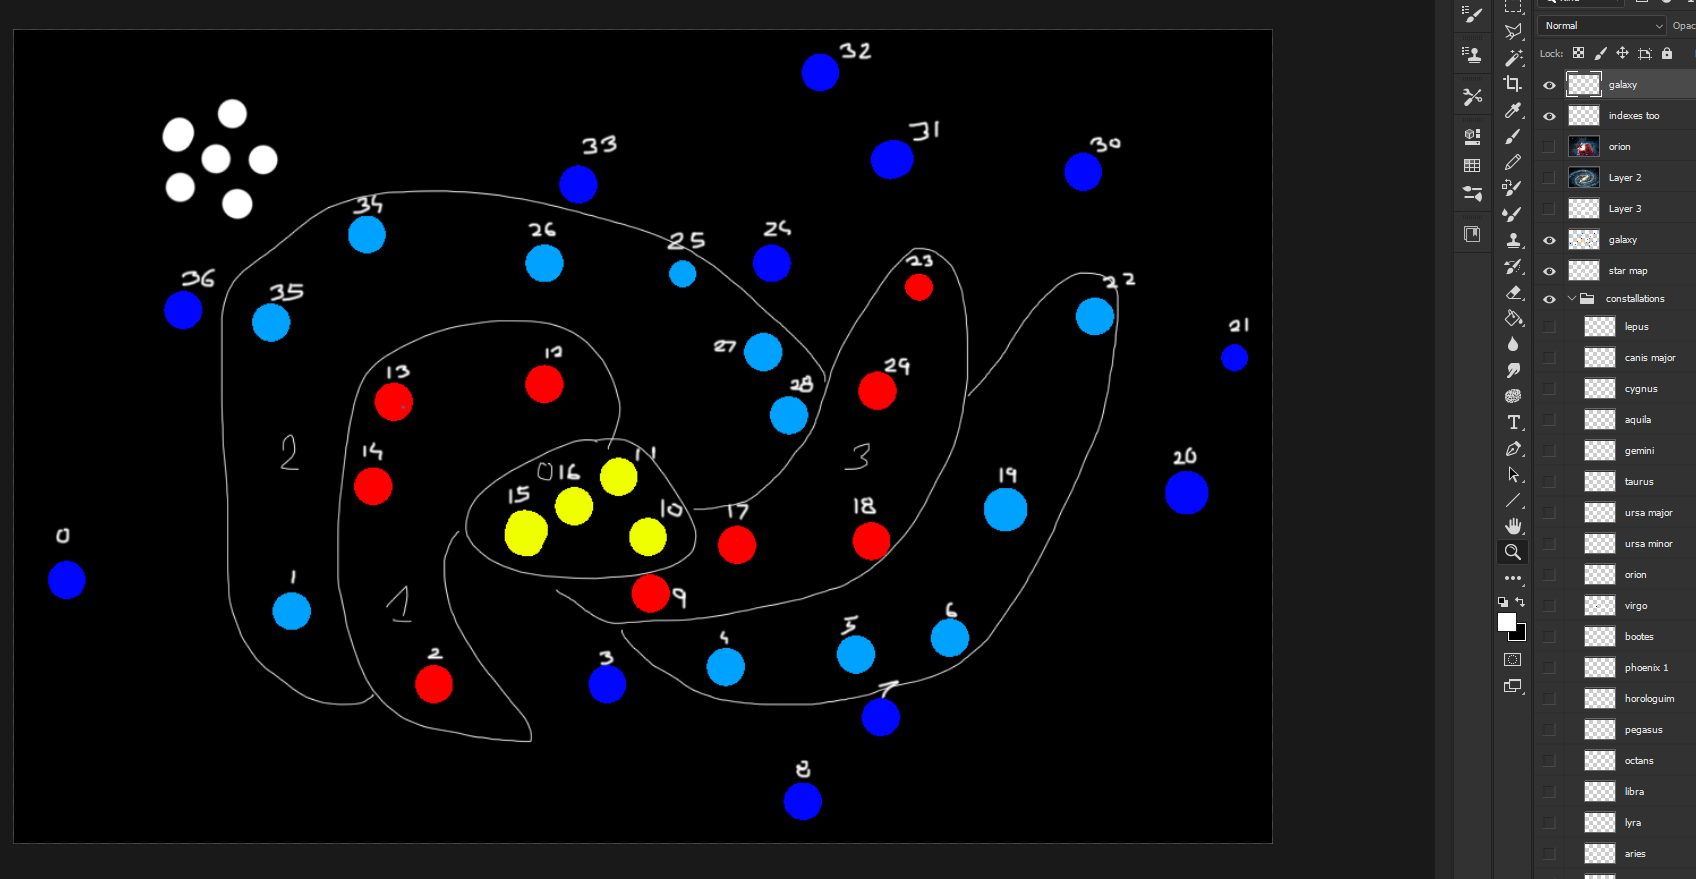 32
33
31
30
34
26
25
24
23
22
36
35
21
27
28
29
13
12
14
2
3
11
0
16
15
10
17
18
19
20
0
1
1
9
2
3
4
5
6
7
8
Normal
Opac
Lock:
galaxy
indexes too
orion
Layer 2
Layer 3
galaxy
star map
constallations
lepus
canis major
cygnus
aquila
gemini
taurus
ursa major
ursa minor
orion
virgo
bootes
phoenix 1
horologuim
pegasus
octans
libra
lyra
aries